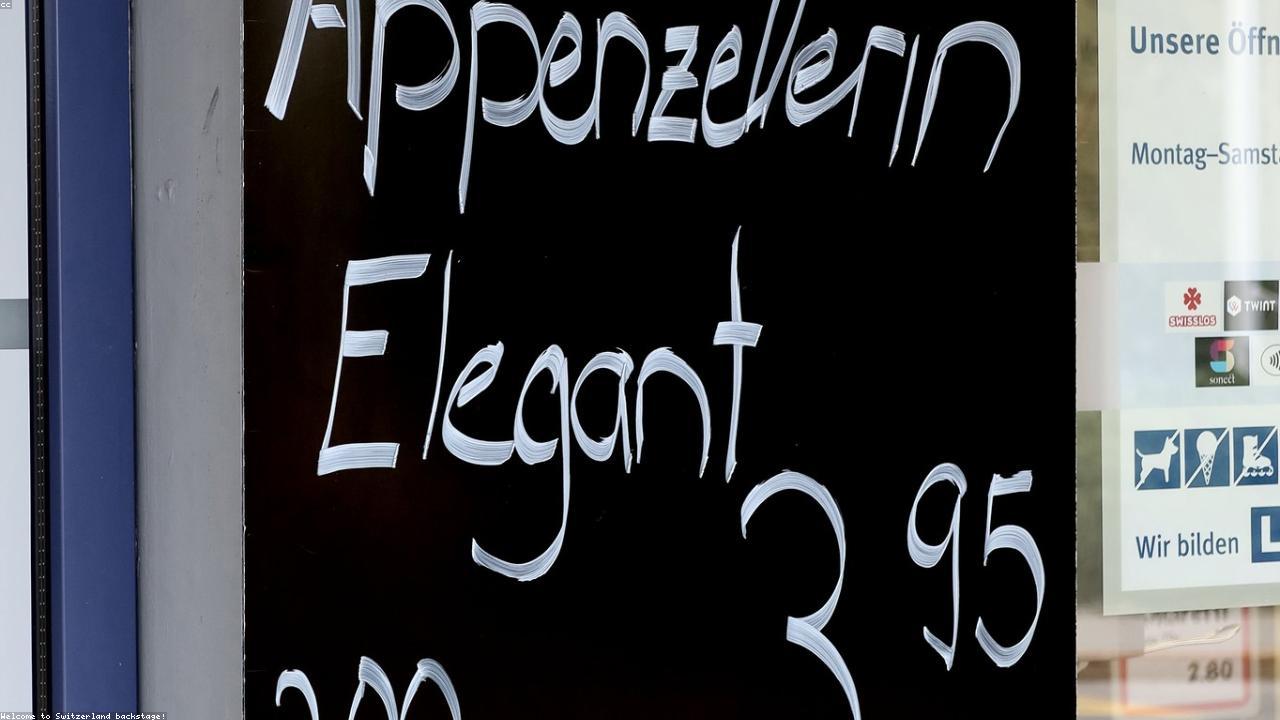 cc
Appenzellerin
Elegant
95
Unsere Öffn
Montag–Samsta
SWISSLOS
TWINT
sonect
Wir bilden L
2.80
Welcome to Switzerland backstage!